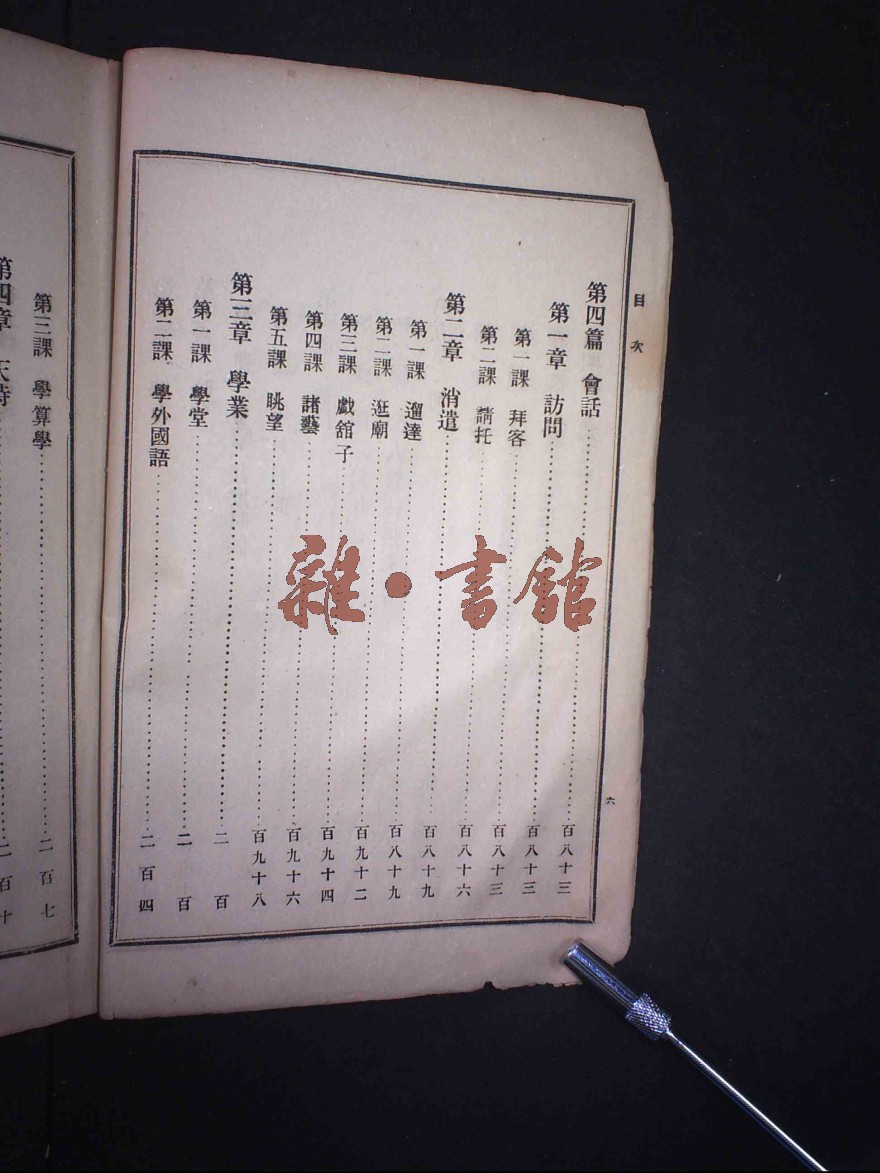 目次
六
第四篇 會話……百八十三
第一章 訪問……百八十三
第一課 拜客……百八十三
第二課 請托……百八十六
第二章 消遣……百八十九
第一課 遛達……百八十九
第二課 逛廟……百九十二
第三課 戲舘子……百九十四
第四課 諸藝……百九十六
第五課 眺望……百九十八
第三章 學業……二百
第一課 學堂……二百
第二課 學外國語……二百四
第三課 學算學……二百七
第四章 天時……二百十
雜·書館